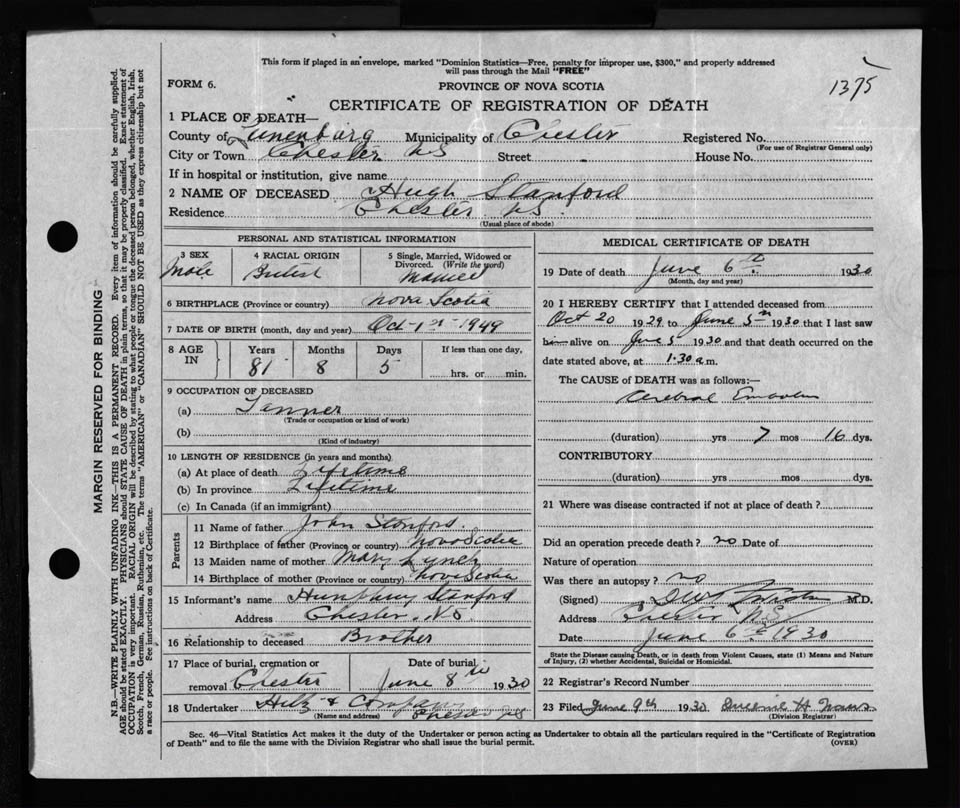 This form if placed in an envelope, marked "Dominion Statistics—Free, penalty for improper use, $300," and properly addressed
will pass through the Mail "FREE"
FORM 6.
PROVINCE OF NOVA SCOTIA
1375
CERTIFICATE OF REGISTRATION OF DEATH
1 PLACE OF DEATH—
County of Lunenburg Municipality of Chester Registered No.
(For use of Registrar General only)
City or Town Chester NS Street House No.
If in hospital or institution, give name
2 NAME OF DECEASED Hugh Stanford
Residence Chester NS.
(Usual place of abode)
PERSONAL AND STATISTICAL INFORMATION
3 SEX
Male
4 RACIAL ORIGIN
British
5 Single, Married, Widowed or
Divorced. (Write the word)
Married
6 BIRTHPLACE (Province or country) Nova Scotia
7 DATE OF BIRTH (month, day and year) Oct 1st 1949
8 AGE
IN
Years
81
Months
8
Days
5
If less than one day,
hrs. or min.
9 OCCUPATION OF DECEASED
(a) Tanner
(Trade or occupation or kind of work)
(b)
(Kind of industry)
10 LENGTH OF RESIDENCE (in years and months)
(a) At place of death Lifetime
(b) In province Lifetime
(c) In Canada (if an immigrant)
Parents
11 Name of father John Stanford
12 Birthplace of father (Province or country) Nova Scotia
13 Maiden name of mother Mary Lynch
14 Birthplace of mother (Province or country) Nova Scotia
15 Informant's name Humphrey Stanford
Address Chester, NS.
16 Relationship to deceased Brother
17 Place of burial, cremation or
removal Chester
Date of burial
June 8th 1930
18 Undertaker Hilz & Company
(Name and address) Chester NS
MEDICAL CERTIFICATE OF DEATH
19 Date of death June 6th 1930
(Month, day and year)
20 I HEREBY CERTIFY that I attended deceased from
Oct 20 1929 to June 5th 1930 that I last saw
him alive on June 5 1930 and that death occurred on the
date stated above, at 1.30 a.m.
The CAUSE OF DEATH was as follows:—
Cerebral
(duration) yrs 7 mos 16 dys.
CONTRIBUTORY
(duration) yrs. mos. dys.
21 Where was disease contracted if not at place of death?
Did an operation precede death? no Date of
Nature of operation
Was there an autopsy? no
(Signed) M.D.
Address Chester NS
Date June 6th 1930
State the Disease causing Death, or in death from Violent Causes, state (1) Means and Nature
of Injury, (2) whether Accidental, Suicidal or Homicidal.
22 Registrar's Record Number
23 Filed June 9th 1930 H
(Division Registrar)
Sec. 46—Vital Statistics Act makes it the duty of the Undertaker or person acting as Undertaker to obtain all the particulars required in the "Certificate of Registration
of Death" and to file the same with the Division Registrar who shall issue the burial permit. (OVER)
MARGIN RESERVED FOR BINDING
N.B.—WRITE PLAINLY WITH UNFADING INK—THIS IS A PERMANENT RECORD. Every item of information should be carefully supplied.
AGE should be stated EXACTLY. PHYSICIANS should STATE CAUSE OF DEATH in plain terms, so that it may be properly classified. Exact statement of
OCCUPATION is very important. RACIAL ORIGIN will be described by stating to what people or tongue the deceased person belonged, whether English, Irish,
Scotch, French, German, Russian, Ruthenian, etc. The terms "AMERICAN" or "CANADIAN" SHOULD NOT BE USED as they express citizenship but not
a race or people. See instructions on back of Certificate.